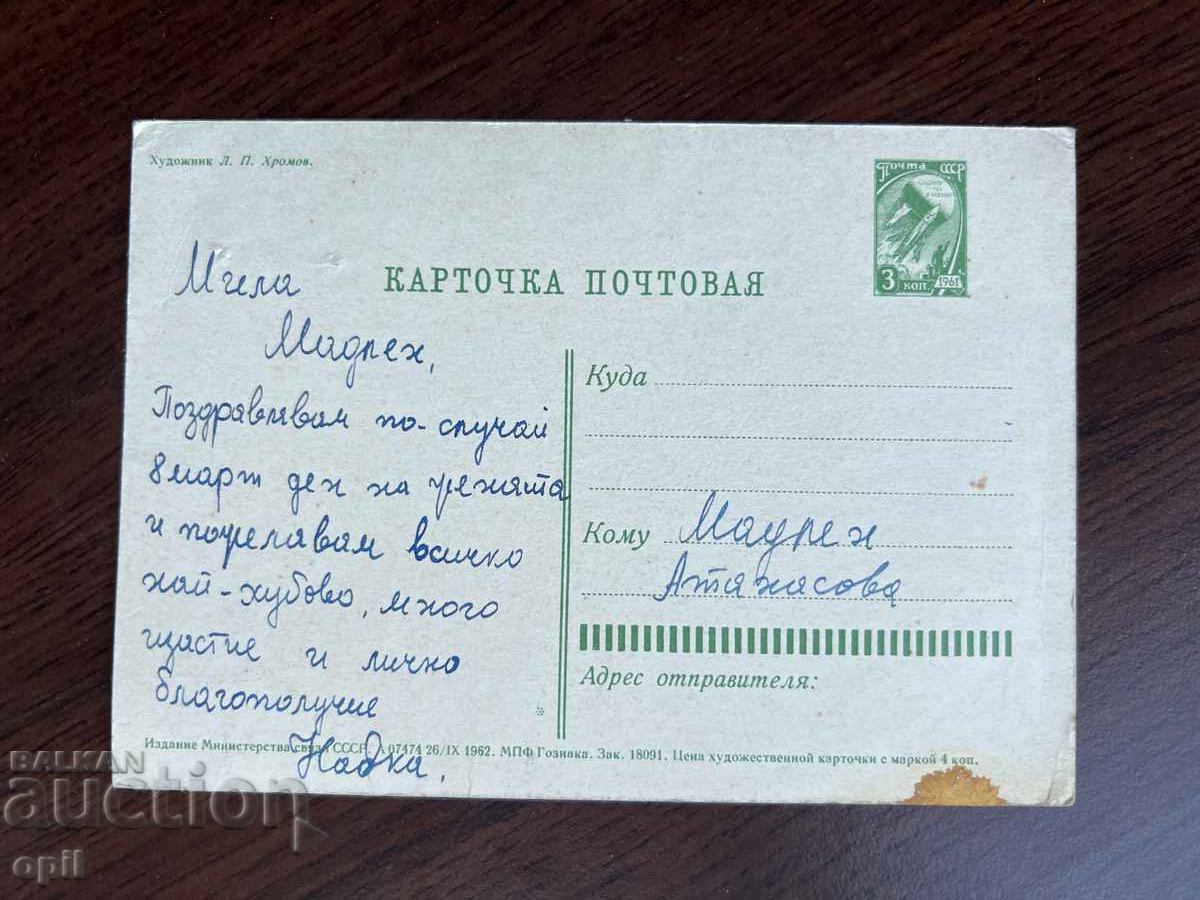 Художник Л. П. Хромов.
Почта СССР
3 коп. 1961
КАРТОЧКА ПОЧТОВАЯ
Мила
Мадлен,
Поздравлявам по-случай
8 март ден на жената
и пожелавам всичко
най-хубаво, много
щастие и лично
благополучие
Надка.
Куда
Кому Мадлен
Атанасова
Адрес отправителя:
Издание Министерства связи СССР. А 07474 26/IX 1962. МПФ Гознака. Зак. 18091. Цена художественной карточки с маркой 4 коп.
BALKAN
auction
opil